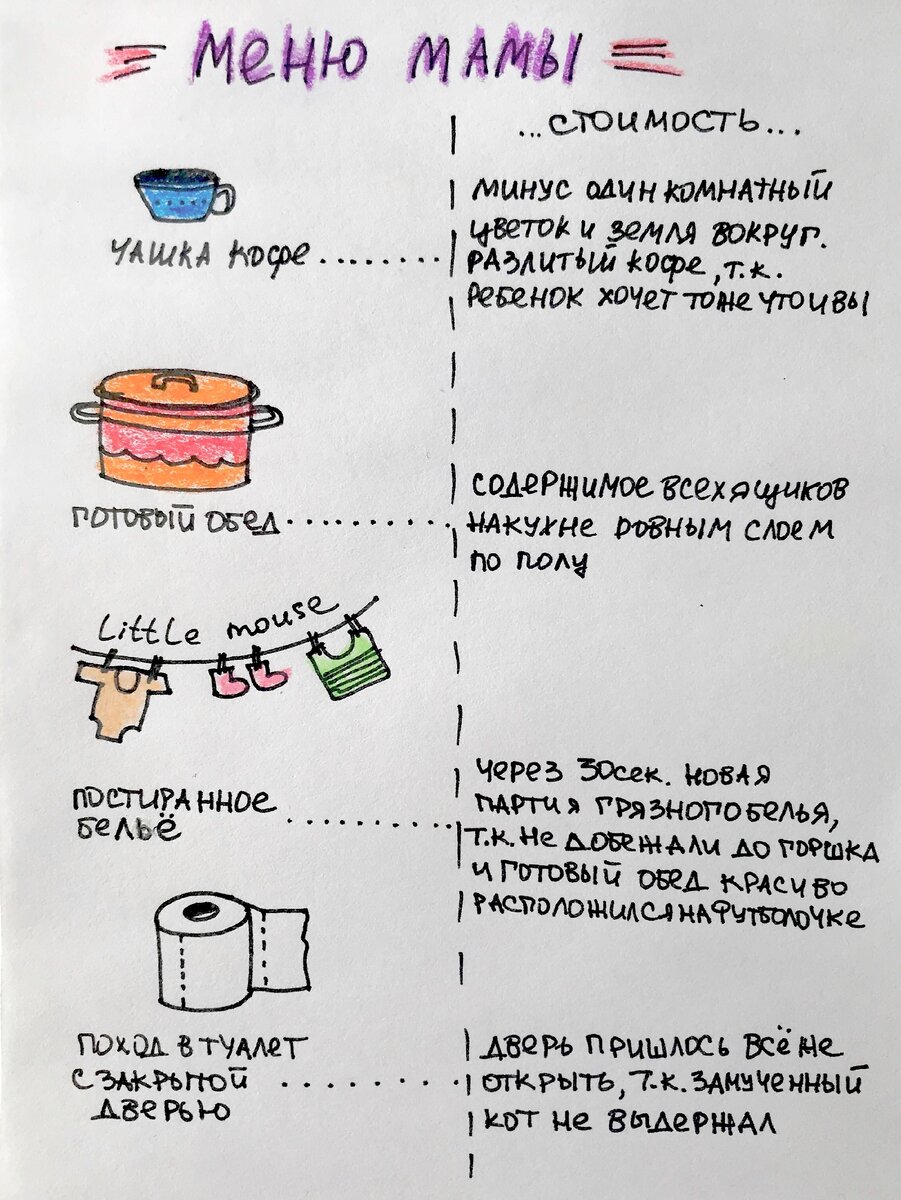 = МЕНЮ МАМЫ =
...СТОИМОСТЬ...
ЧАШКА КОФЕ........
МИНУС ОДИН КОМНАТНЫЙ
ЦВЕТОК И ЗЕМЛЯ ВОКРУГ.
РАЗЛИТЫЙ КОФЕ, Т.К.
РЕБЕНОК ХОЧЕТ ТОЖЕ ЧТО И ВЫ
ГОТОВЫЙ ОБЕД...........
СОДЕРЖИМОЕ ВСЕХ ЯЩИКОВ
НА КУХНЕ РОВНЫМ СЛОЕМ
ПО ПОЛУ
Little mouse
ПОСТИРАННОЕ
БЕЛЬЁ ...........
ЧЕРЕЗ 30 СЕК. НОВАЯ
ПАРТИЯ ГРЯЗНОГО БЕЛЬЯ,
Т.К. НЕ ДОБЕЖАЛИ ДО ГОРШКА
И ГОТОВЫЙ ОБЕД КРАСИВО
РАСПОЛОЖИЛСЯ НА ФУТБОЛОЧКЕ
ПОХОД В ТУАЛЕТ
С ЗАКРЫТОЙ ...........
ДВЕРЬЮ
ДВЕРЬ ПРИШЛОСЬ ВСЁ ЖЕ
ОТКРЫТЬ, Т.К. ЗАМУЧЕННЫЙ
КОТ НЕ ВЫДЕРЖАЛ